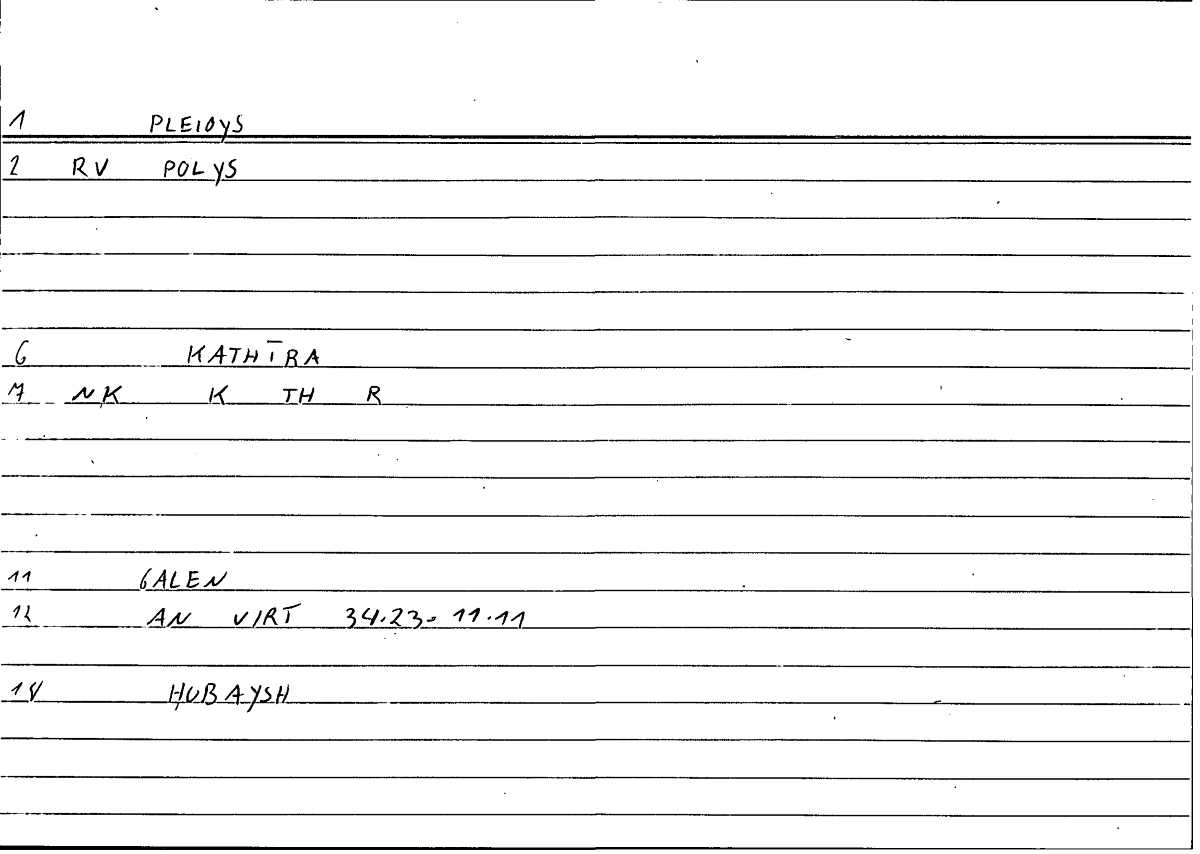 1 PLEIOYS
2 RV POLYS
6 KATHĪRA
7 NK K TH R
11 GALEN
12 AN VIRT 34.23- 11.11
14 ḤUBAYSH